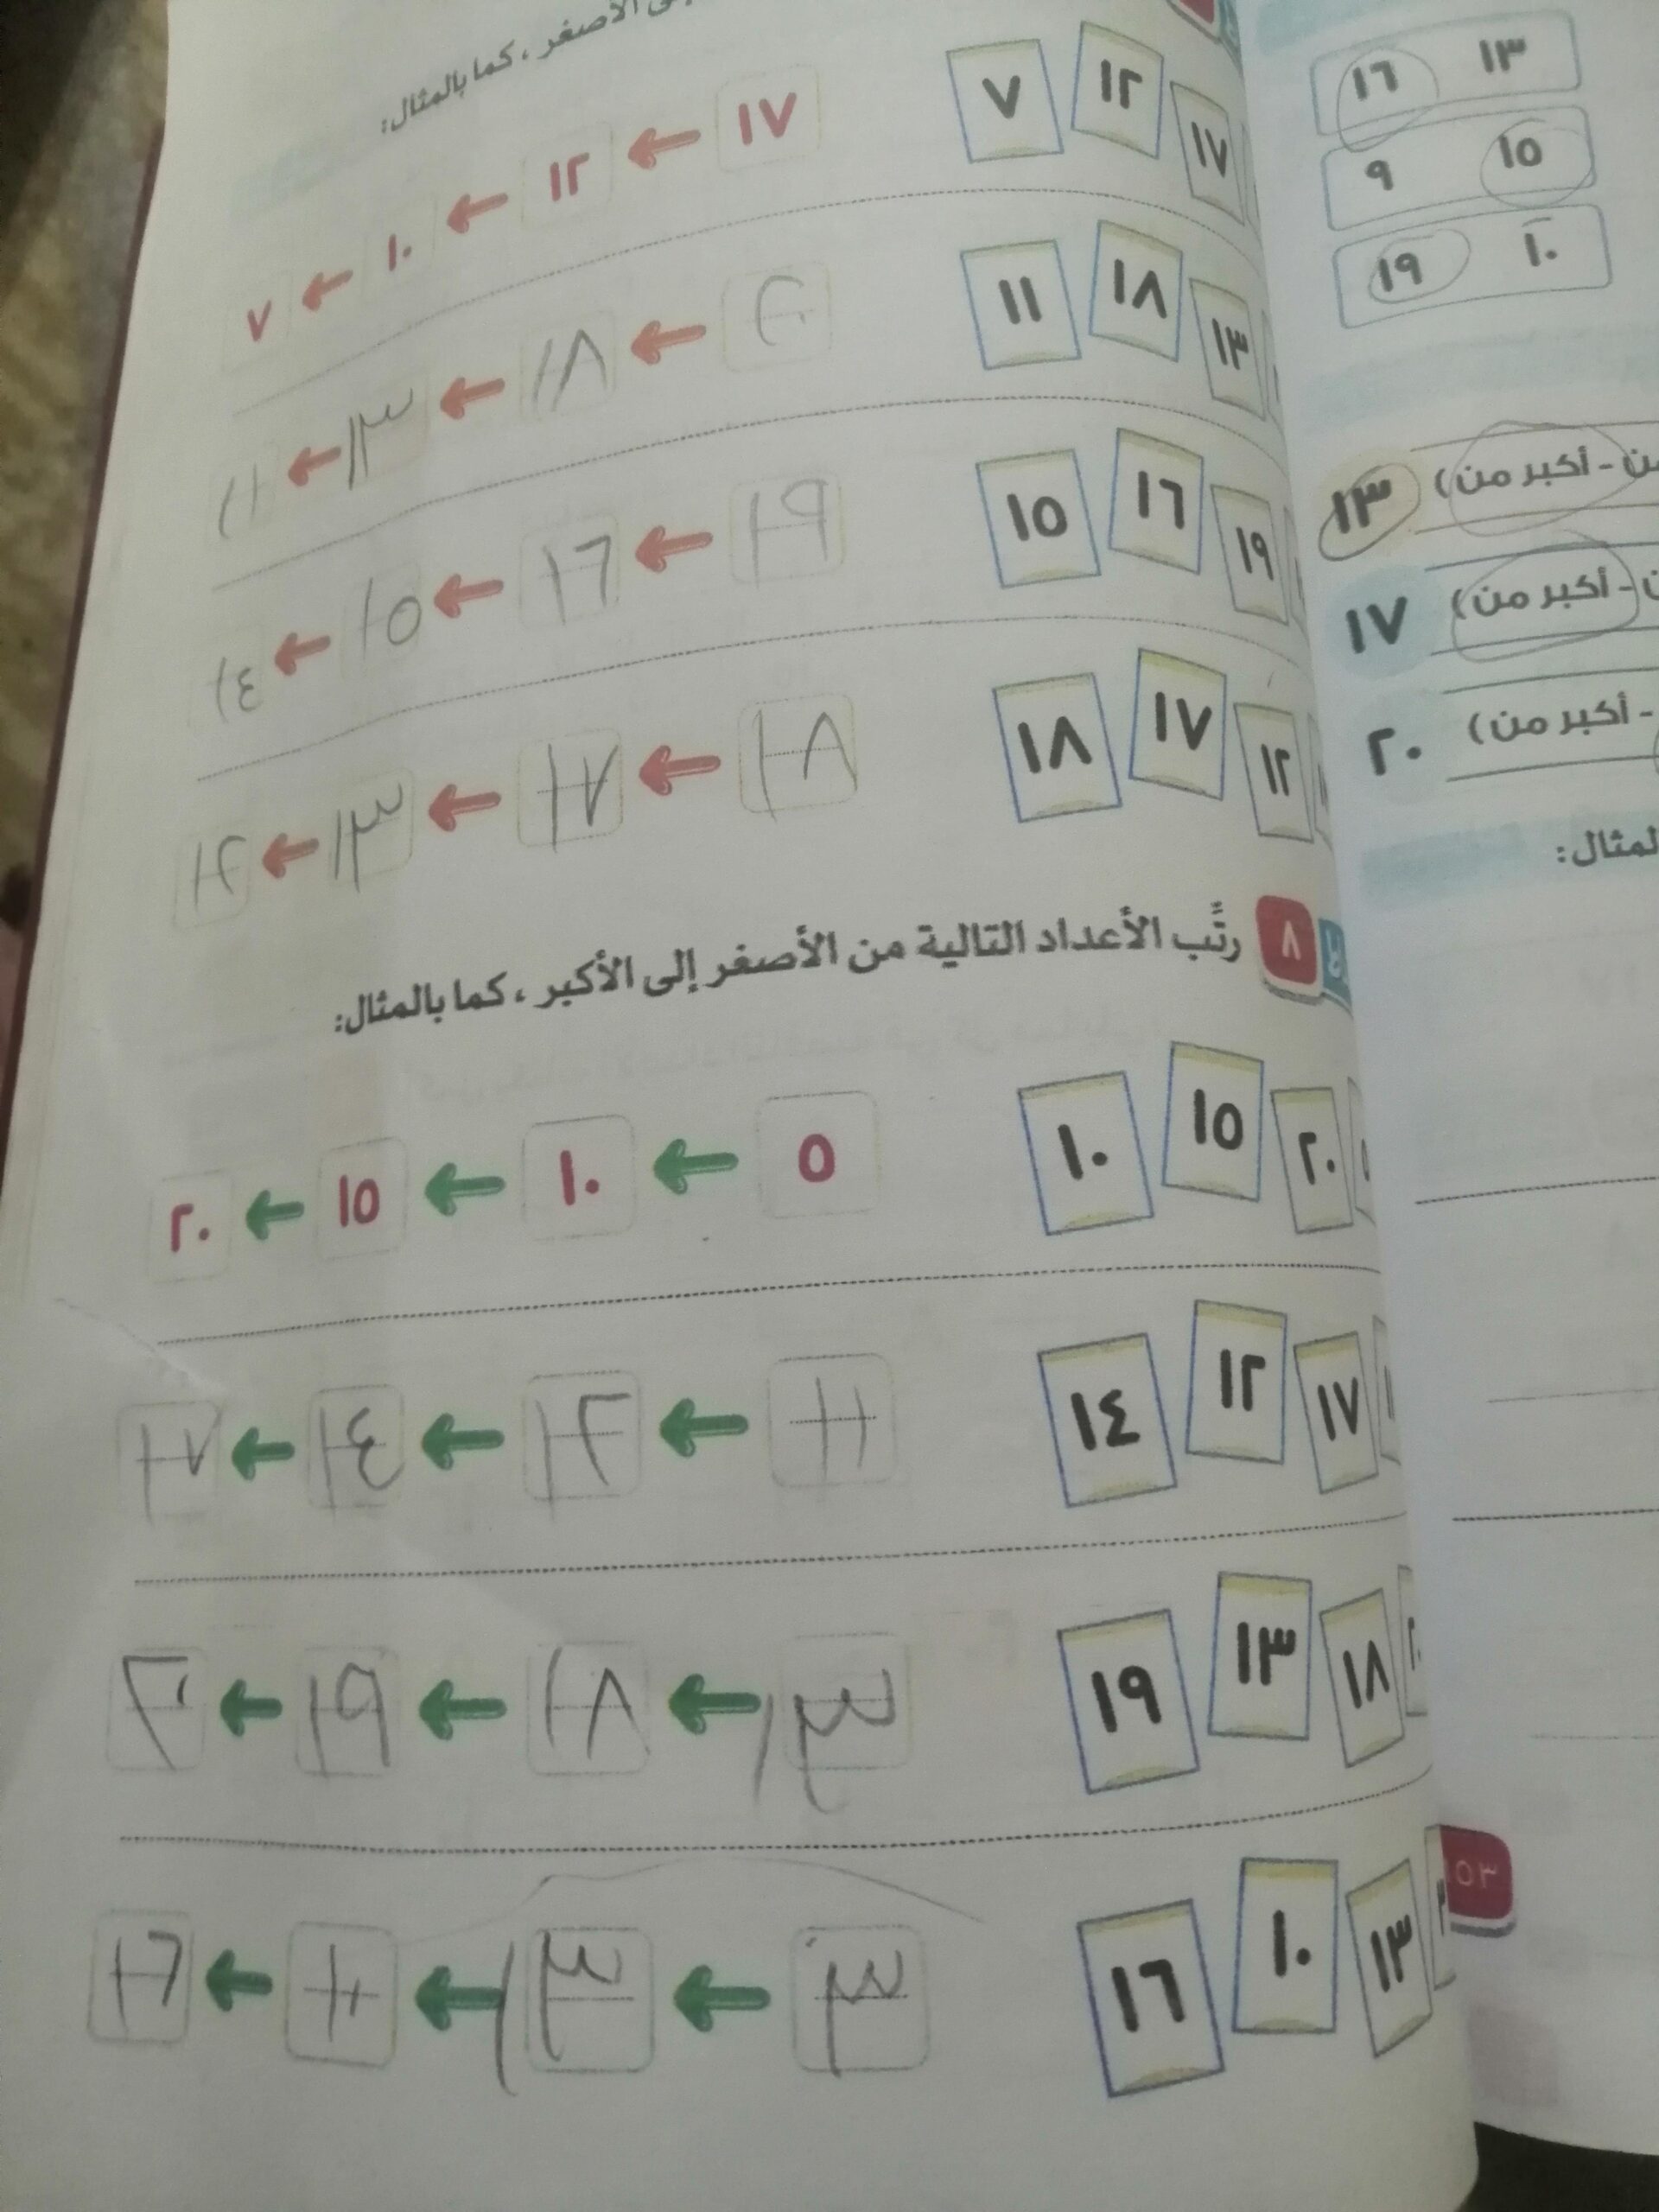 ١٣ ١٦
١٥ ٩
١٠ ١٩
أكبر من) ١٣
أكبر من) ١٧
- أكبر من) ٢٠
لمثال:
٥٣
الأصغر، كما بالمثال:
١٧ ١٢ ٧
١٧ ← ١٢ ← ١٠ ← ٧
١٣ ١٨ ١١
٢٠ ← ١٨ ← ١٣ ← ١١
١٩ ١٦ ١٥
١٩ ← ١٦ ← ١٥ ← ١٤
١٢ ١٧ ١٨
١٨ ← ١٧ ← ١٣ ← ١٢
٨ رتِّب الأعداد التالية من الأصغر إلى الأكبر، كما بالمثال:
٢٠ ١٥ ١٠
٥ ← ١٠ ← ١٥ ← ٢٠
١٧ ١٢ ١٤
١١ ← ١٢ ← ١٤ ← ١٧
١٨ ١٣ ١٩
١٣ ← ١٨ ← ١٩ ← ٢٠
١٣ ١٠ ١٦
٣ ← ١٣ ← ١٠ ← ١٦